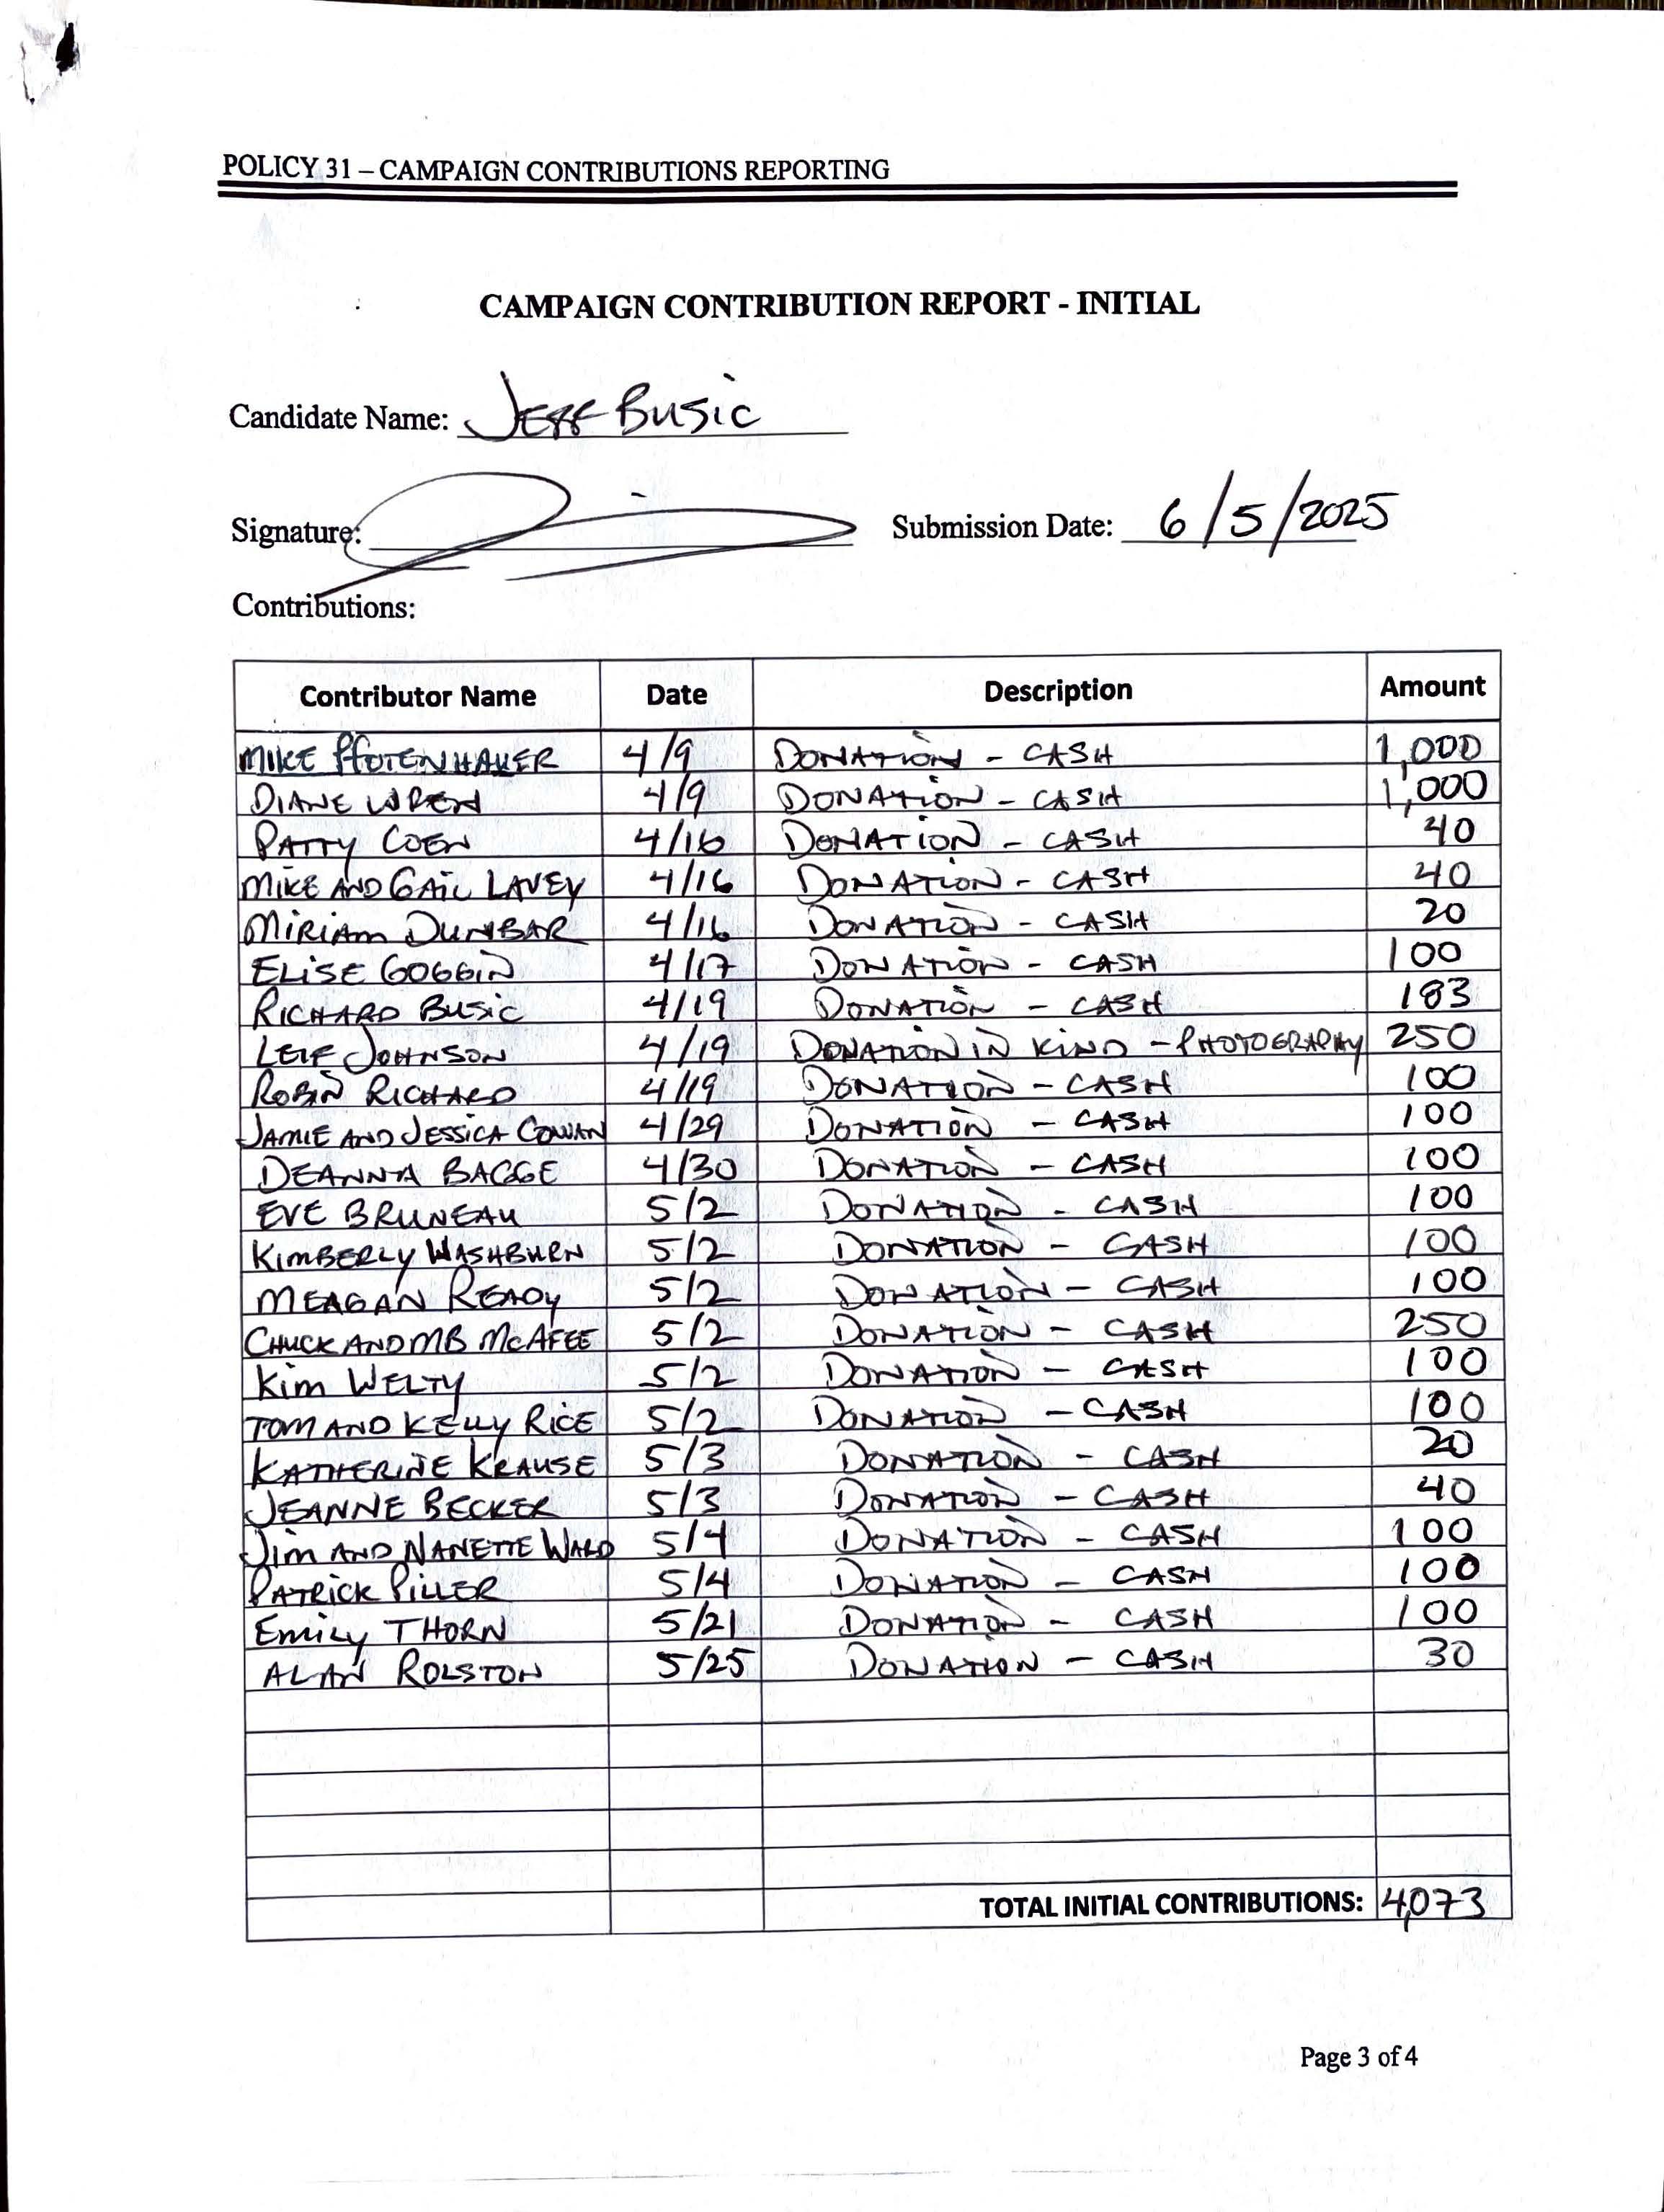 POLICY 31 – CAMPAIGN CONTRIBUTIONS REPORTING
CAMPAIGN CONTRIBUTION REPORT - INITIAL
Candidate Name: JEFF BUSIC
Signature: Submission Date: 6/5/2025
Contributions:
Contributor Name Date Description Amount
MIKE PFOTENHAUER 4/9 DONATION - CASH 1,000
DIANE WREN 4/9 DONATION - CASH 1,000
PATTY COEN 4/16 DONATION - CASH 40
MIKE AND GAIL LAVEY 4/16 DONATION - CASH 40
MIRIAM DUNBAR 4/16 DONATION - CASH 20
ELISE GOGGIN 4/17 DONATION - CASH 100
RICHARD BUSIC 4/19 DONATION - CASH 183
LEIF JOHNSON 4/19 DONATION IN KIND - PHOTOGRAPHY 250
ROBIN RICHARD 4/19 DONATION - CASH 100
JAMIE AND JESSICA COWAN 4/29 DONATION - CASH 100
DEANNA BAGGE 4/30 DONATION - CASH 100
EVE BRUNEAU 5/2 DONATION - CASH 100
KIMBERLY WASHBURN 5/2 DONATION - CASH 100
MEAGAN READY 5/2 DONATION - CASH 100
CHUCK AND MB MCAFEE 5/2 DONATION - CASH 250
KIM WELTY 5/2 DONATION - CASH 100
TOM AND KELLY RICE 5/2 DONATION - CASH 100
KATHERINE KRAUSE 5/3 DONATION - CASH 20
JEANNE BECKER 5/3 DONATION - CASH 40
JIM AND NANETTE WALD 5/4 DONATION - CASH 100
PATRICK PILLER 5/4 DONATION - CASH 100
EMILY THORN 5/21 DONATION - CASH 100
ALAN ROLSTON 5/25 DONATION - CASH 30
TOTAL INITIAL CONTRIBUTIONS: 4,073
Page 3 of 4